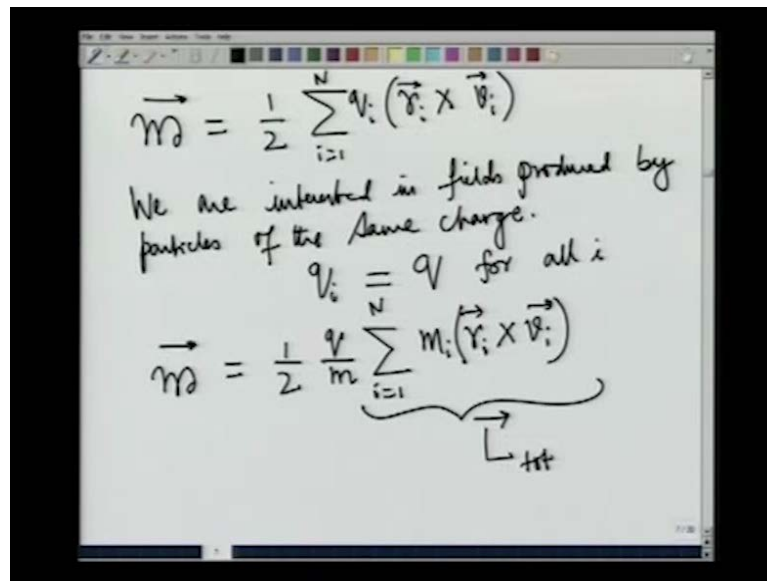 File Edit View Insert Actions Tools Help
m⃗ = 1/2 Σ_{i=1}^{N} q_i (r⃗_i × v⃗_i)
We are interested in fields produced by
particles of the same charge.
q_i = q for all i
m⃗ = 1/2 q/m Σ_{i=1}^{N} m_i (r⃗_i × v⃗_i)
L⃗_tot